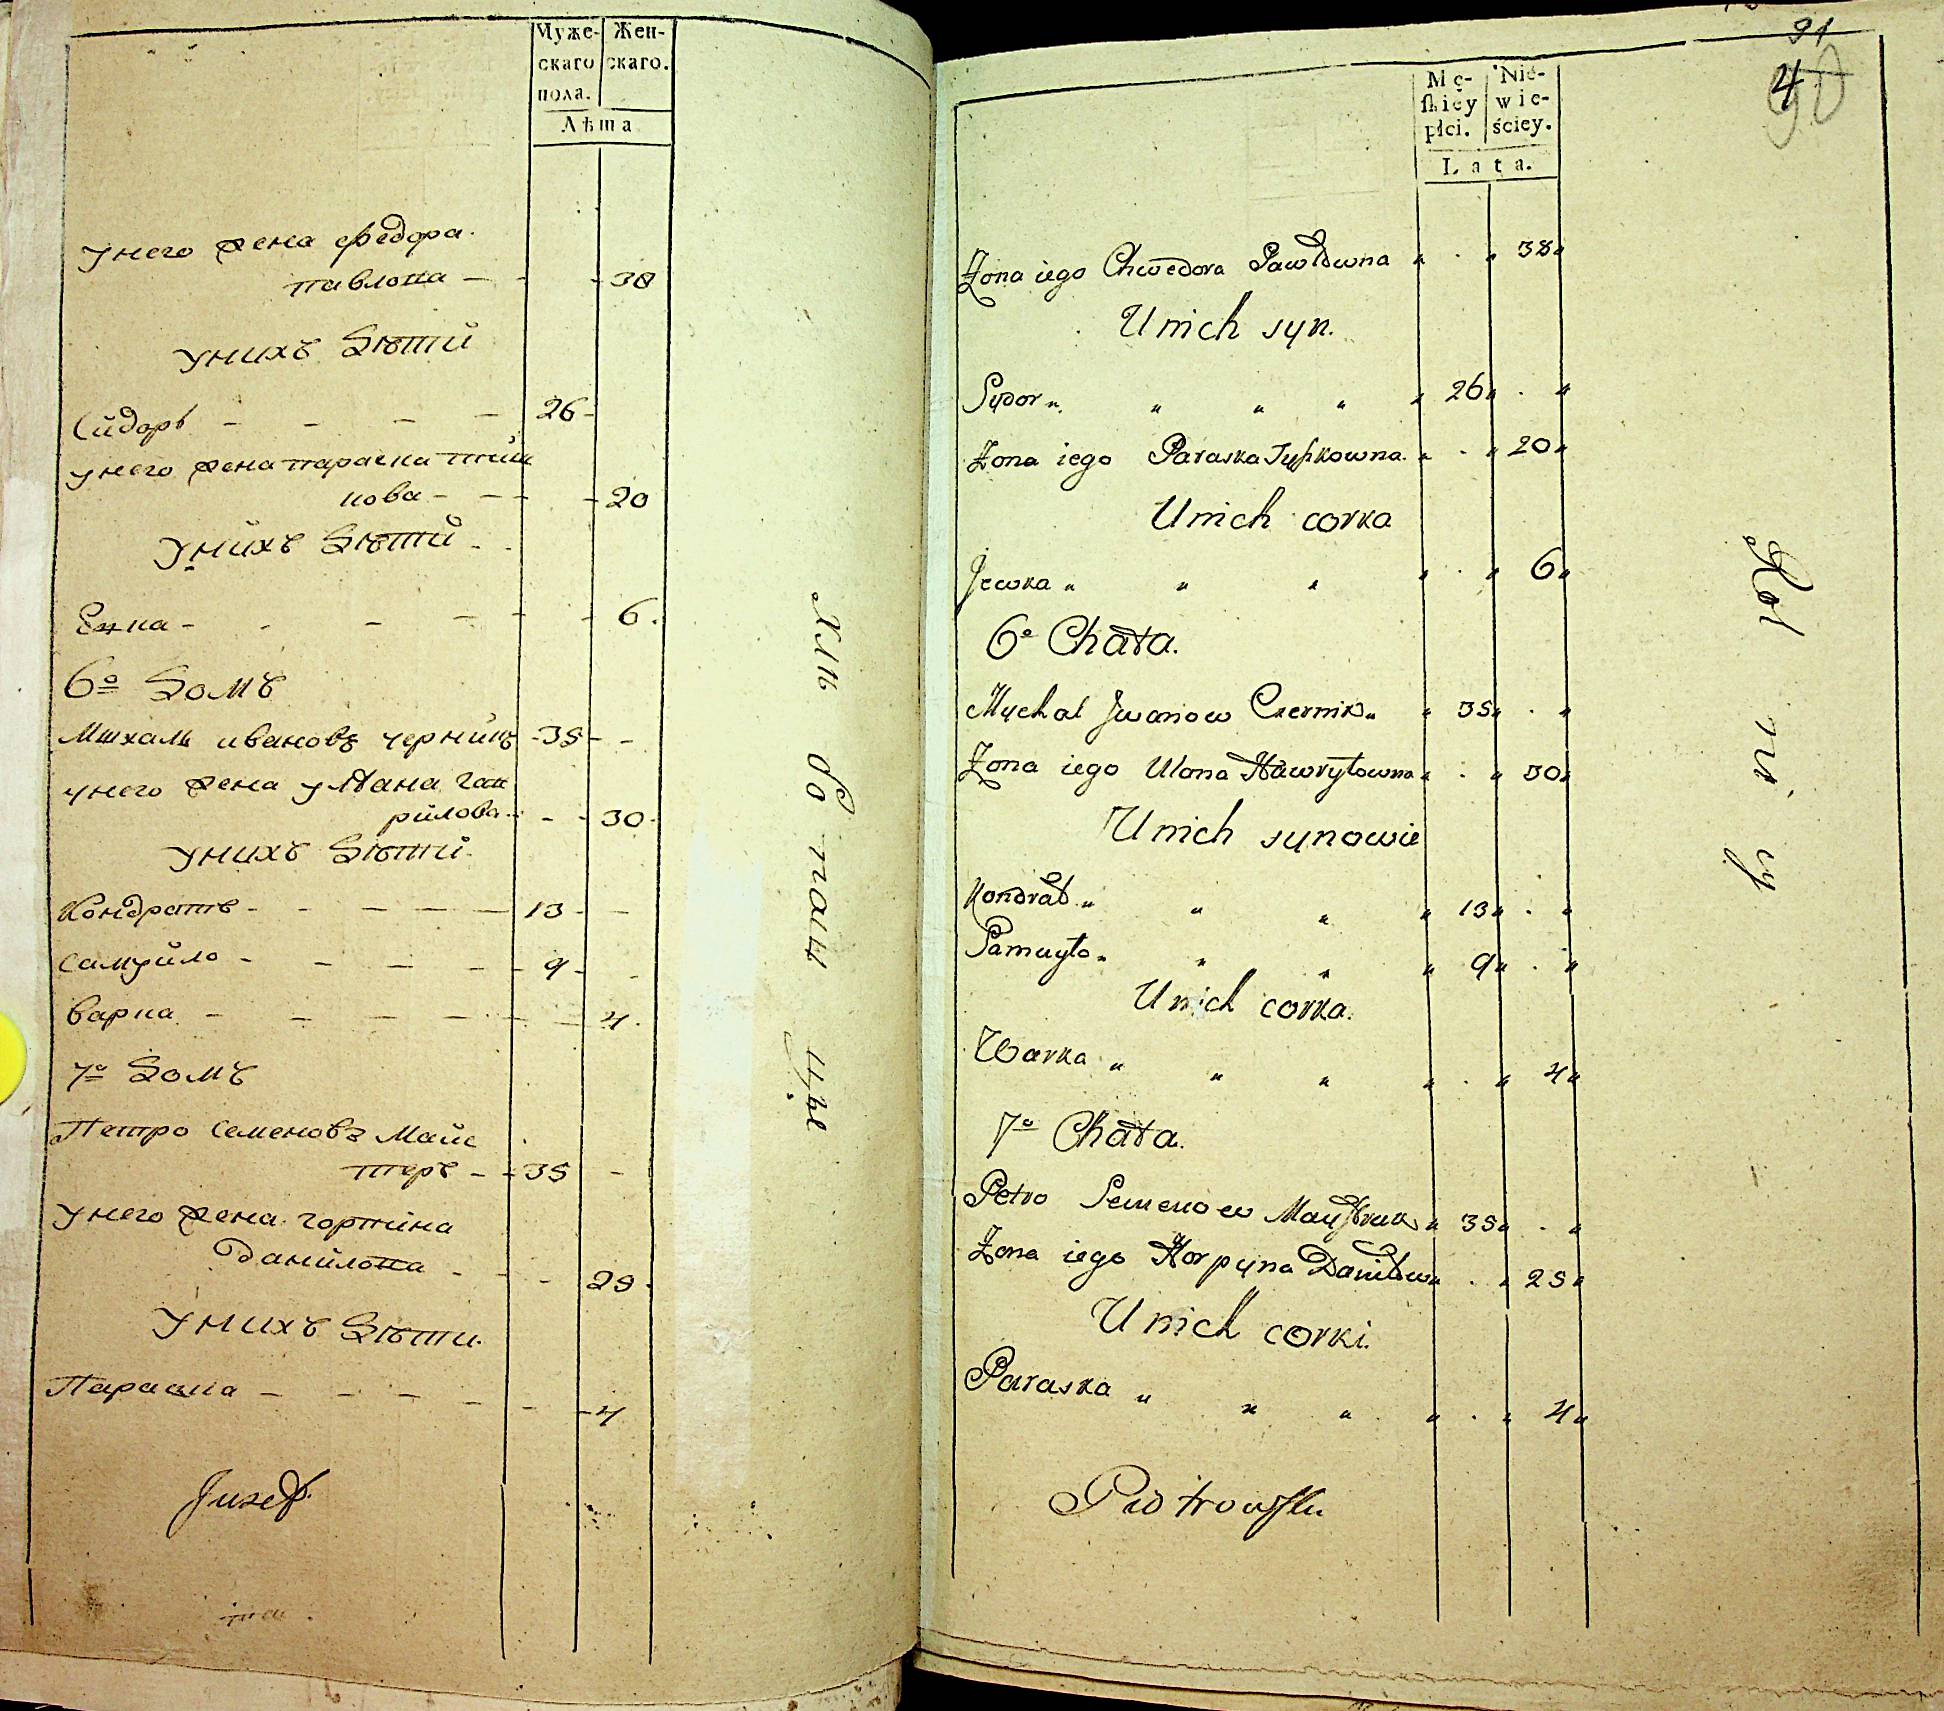 Муже- Жен-
скаго скаго.
пола.
Лѣта
унего жена федора
павлова - - - 38
унихъ Дѣти
Сидоръ - - - - 26 -
унего жена параска
кова - - - - 20
унихъ Дѣти
Евка - - - - - - 6.
6о Домъ
Михаль ивановъ черникъ - 35 - -
унего жена уляна гав
рилова - - - 30
унихъ Дѣти
Кондратъ - - - - - 13 - -
Самуйло - - - - - 9 - -
Варка - - - - - - - 4.
7о Домъ
Петро Семеновъ Майс
теръ - - 35 -
унего жена горпина
Данилова - - - 25
унихъ Дѣти
Параска - - - - - - 4
Jusef
хлѣ бо паш цѣ
91
4
90
Mę- Nie-
skiey wie-
płci. ściey.
Lata.
Żona iego Chwedora Pawłowna „ . „ 38„
Unich syn.
Sydor „ „ „ „ „ 26„ . „
Żona iego Paraska „ . „ 20„
Unich corka
Jewka „ „ „ „ . „ 6„
6o Chata.
Mychał Jwanow Czernik „ „ 35„ . „
Żona iego Ulana Hawryłowna „ . „ 30„
Unich synowie
Kondrat „ „ „ „ 13„ . „
Samuyło „ „ „ „ 9„ . „
Unich corka.
Warka „ „ „ „ . „ 4„
7o Chata.
Petro Semenow „ 35„ . „
Żona iego Horpyna Daniłow „ . „ 25„
Unich corki.
Paraska „ „ „ „ . „ 4„
Piotrowski
Rol ni cy